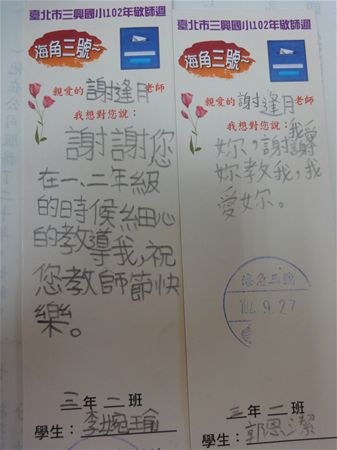 臺北市三興國小102年敬師週
海角三號~
親愛的謝逢月老師
我想對您說：
謝謝您
在一、二年級
的時候細心
的教導我,祝
您教師節快
樂。
三年二班
學生：李婉瑜
臺北市三興國小102年敬師週
海角三號~
親愛的謝逢月老師
我想對您說：我愛
妳,謝謝
妳教我,我
愛妳。
海角三號
102.9.27
三年二班
學生：郭恩潔